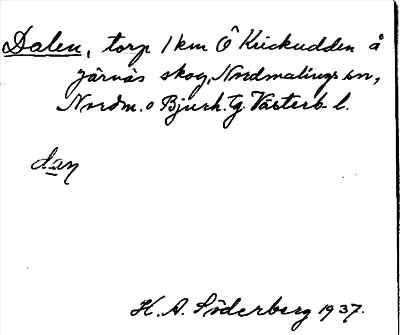 Dalen, torp 1 km Ö Knickudden å
Järnäs skog, Nordmalings sn,
Nordm. o Bjurh. tg. Västerb. l.
dan
H. A. Söderberg 1937.